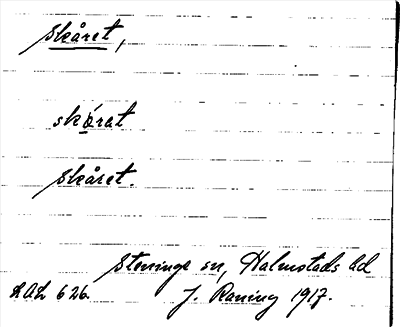 Skåret,
skórat
Skåret.
Steninge sn, Halmstads hd
LAL 626. J. Raning 1917.